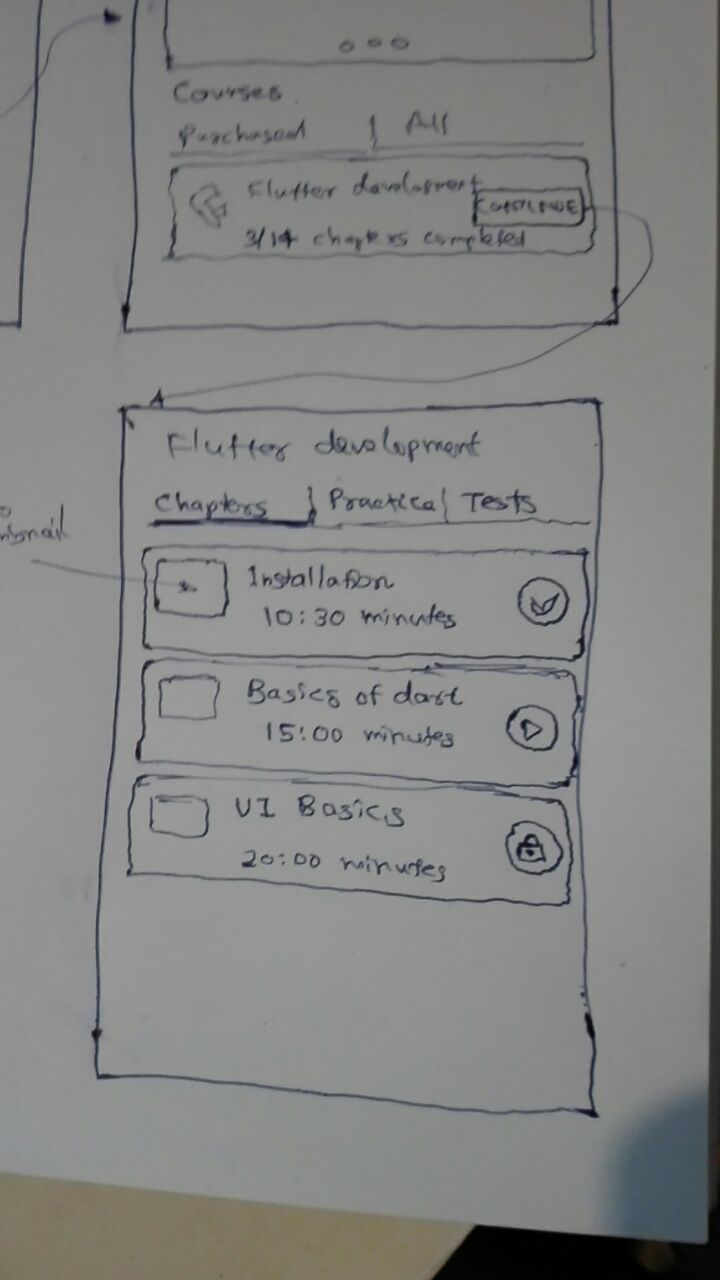 Courses
Purchased | All
Flutter development
CONTINUE
3/14 chapters completed
Flutter development
Chapters | Practice | Tests
Installation
10:30 minutes
Basics of dart
15:00 minutes
UI Basics
20:00 minutes